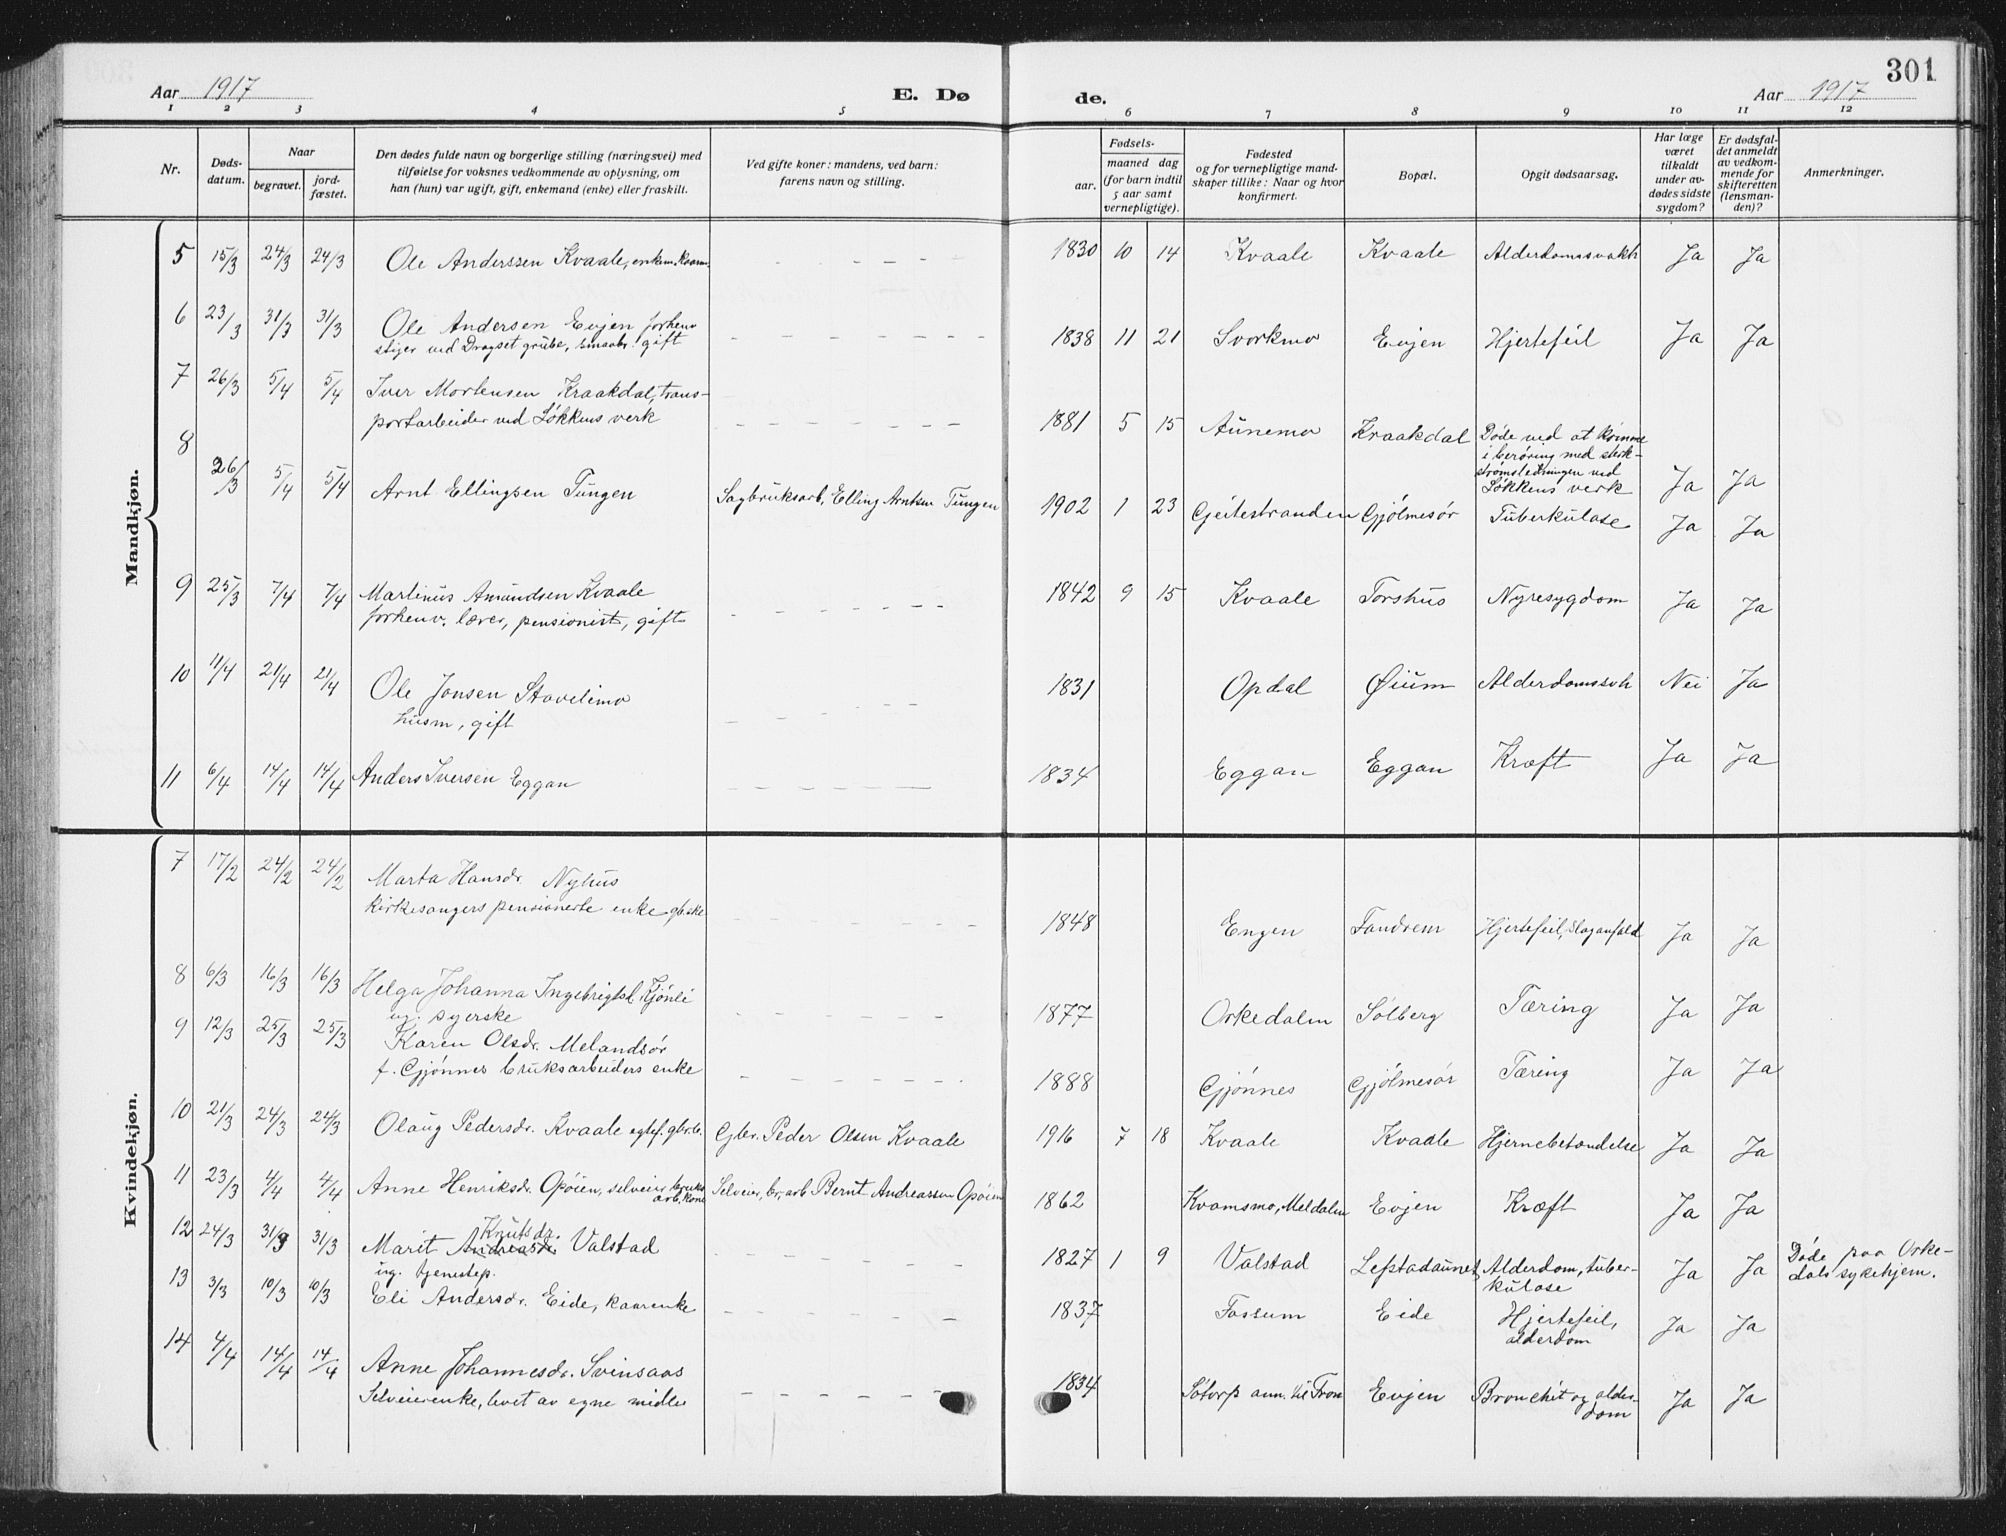 301
Aar 1917
E. Dø
de.
Aar 1917
1 2 3 4 5 6 7 8 9 10 11 12
Nr.
Døds-
datum.
Naar
begravet.
jord-
fæstet.
Den dødes fulde navn og borgerlige stilling (næringsvei) med
tilføielse for voksnes vedkommende av oplysning, om
han (hun) var ugift, gift, enkemand (enke) eller fraskilt.
Ved gifte koner: mandens, ved barn:
farens navn og stilling.
Fødsels-
aar.
maaned dag
(for barn indtil
5 aar samt
vernepligtige).
Fødested
og for vernepligtige mand-
skaper tillike: Naar og hvor
konfirmert.
Bopæl.
Opgit dødsaarsag.
Har læge
været
tilkaldt
under av-
dødes sidste
sygdom?
Er dødsfal-
det anmeldt
av vedkom-
mende for
skifteretten
(lensman-
den)?
Anmerkninger.
Mandkjøn.
5 15/3 24/3 24/3 Ole Anderssen Kvaale, enkem. 1830 10 14 Kvaale Kvaale Alderdomssvakh Ja Ja
6 23/3 31/3 31/3 Ole Andersen Evjen forhenv
stiger ved Dragset grube, smaabr. gift 1838 11 21 Svorkmo Evjen Hjertefeil Ja Ja
7 26/3 5/4 5/4 Iver Mortensen Kraakdal, trans-
portarbeider ved Løkkens verk 1881 5 15 Aunemo Kraakdal Døde ved at komme
i berøring med sterk-
strømsledningen ved
Løkkens verk Ja Ja
8 26/3 5/4 5/4 Arnt Ellingsen Tungen Sagbruksarb. Elling Arntsen Tungen 1902 1 23 Geitestranden Gjølmesør Tuberkulose Ja Ja
9 25/3 7/4 7/4 Martinus Amundsen Kvaale
forhenv. lærer, pensionist, gift 1842 9 15 Kvaale Torshus Nyresygdom Ja Ja
10 11/4 21/4 21/4 Ole Jonsen Stavelimo
husm, gift 1831 Opdal Øium Alderdomssvh Nei Ja
11 6/4 14/4 14/4 Anders Iversen Eggan 1834 Eggan Eggan Kræft Ja Ja
Kvindekjøn.
7 17/2 24/2 24/2 Marta Hansdr. Nyhus
Kirkesangers pensionerte enke 1848 Engen Fandrem Hjertefeil, Slaganfald Ja Ja
8 6/3 16/3 16/3 Helga Johanna Ingebrigtsd. Kjønli
ug. syerske 1877 Orkedalen Solberg Tæring Ja Ja
9 12/3 25/3 25/3 Karen Olsdr. Melandsør
f. Gjønnes bruksarbeiders enke 1888 Gjønnes Gjølmesør Tæring Ja Ja
10 21/3 24/3 24/3 Olaug Pedersdr. Kvaale egtef. gbr.b. Gbr. Peder Olsen Kvaale 1916 7 18 Kvaale Kvaale Hjernebetændelse Ja Ja
11 23/3 4/4 4/4 Anne Henriksdr. Opøien, selveier bruks
arb. kone Selveier, br.arb Bernt Andreassen Opøien 1862 Kvamsmo, Meldalen Evjen Kræft Ja Ja
12 24/3 31/3 31/3 Marit Knutsdr. Valstad
ug. tjenestep. 1827 1 9 Valstad Lefstadaunet Alderdom, tuber-
kulose Ja Ja Døde paa Orke-
dals sykehjem.
13 3/3 10/3 10/3 Eli Andersdr. Eide, kaarenke 1837 Fossum Eide Hjertefeil,
alderdom Ja Ja
14 4/4 14/4 14/4 Anne Johannesdr. Svinsaas
Selveierenke, levet av egne midler 1834 Evjen Bronchit og alder-
dom Ja Ja